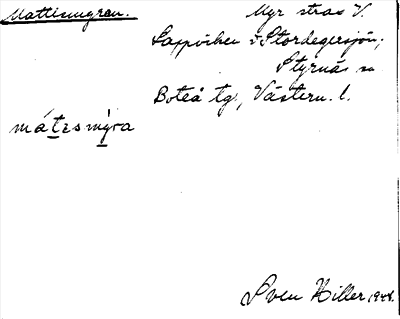 Mattesmyran.
Myr strax V.
Lappviken i Stordegersjön;
Styrnäs sn
Boteå tg, Västern. l.
mátesmýra
Sven Hiller 1948.